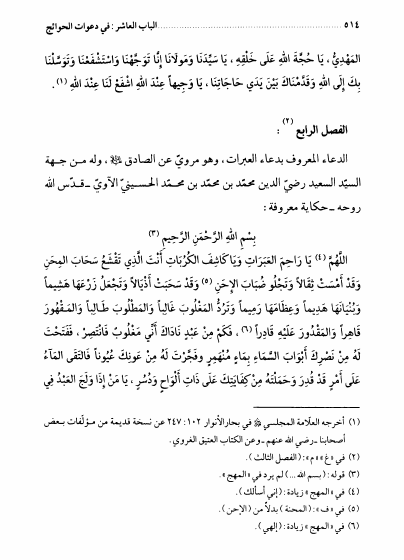 ٥١٤ ............................ الباب العاشر: في دعوات الحوائج
المَهْدِيُّ، يَا حُجَّةَ اللهِ عَلَى خَلْقِهِ، يَا سَيِّدَنَا وَمَوْلَانَا إِنَّا تَوَجَّهْنَا وَاسْتَشْفَعْنَا وَتَوَسَّلْنَا
بِكَ إِلَى اللهِ وَقَدَّمْنَاكَ بَيْنَ يَدَي حَاجَاتِنَا، يَا وَجِيهاً عِنْدَ اللهِ اشْفَعْ لَنَا عِنْدَ اللهِ (١).
الفصل الرابع (٢):
الدعاء المعروف بدعاء العبرات، وهو مرويّ عن الصادق ﷺ، وله من جهة
السيّد السعيد رضيّ الدين محمّد بن محمّد بن محمّد الحسينيّ الآويّ ـ قدّس الله
روحه ـ حكاية معروفة:
بِسْمِ اللهِ الرَّحْمَنِ الرَّحِيمِ (٣)
اللَّهُمَّ (٤) يَا رَاحِمَ العَبَرَاتِ وَيَا كَاشِفَ الكُرُبَاتِ أَنْتَ الَّذِي تَقْشَعُ سَحَابَ المِحَنِ
وَقَدْ أَمْسَتْ ثِقَالاً وَتَجْلُو ضَبَابَ الإِحَنِ (٥) وَقَدْ سَحَبَتْ أَذْيَالاً وَتَجْعَلُ زَرْعَهَا هَشِيماً
وَبُنْيَانَهَا هَدِيماً وَعِظَامَهَا رَمِيماً وَتَرُدُّ المَغْلُوبَ غَالِباً وَالمَطْلُوبَ طَالِباً وَالمَقْهُورَ
قَاهِراً وَالمَقْدُورَ عَلَيْهِ قَادِراً (٦)، فَكَمْ مِنْ عَبْدٍ نَادَاكَ أَنِّي مَغْلُوبٌ فَانْتَصِرْ، فَفَتَحْتَ
لَهُ مِنْ نَصْرِكَ أَبْوَابَ السَّمَاءِ بِمَاءٍ مُنْهَمِرٍ وَفَجَّرْتَ لَهُ مِنْ عَوْنِكَ عُيُوناً فَالتَقَى المَاءُ
عَلَى أَمْرٍ قَدْ قُدِرَ وَحَمَلْتَهُ مِنْ كِفَايَتِكَ عَلَى ذَاتِ أَلْوَاحٍ وَدُسُرٍ، يَا مَنْ إِذَا وَلَجَ العَبْدُ فِي
(١) أخرجه العلّامة المجلسي في بحار الأنوار ١٠٢: ٢٤٧ عن نسخة قديمة من مؤلّفات بعض
أصحابنا ـ رضي الله عنهم ـ وعن الكتاب العتيق الغروي.
(٢) في «غ» «م»: (الفصل الثالث).
(٣) قوله: (بسم الله ...) لم يرد في «المهج».
(٤) في «المهج» زيادة: (إني أسألك).
(٥) في «ف»: (المحنة) بدلاً من (الإحن).
(٦) في «المهج» زيادة: (إلهي).